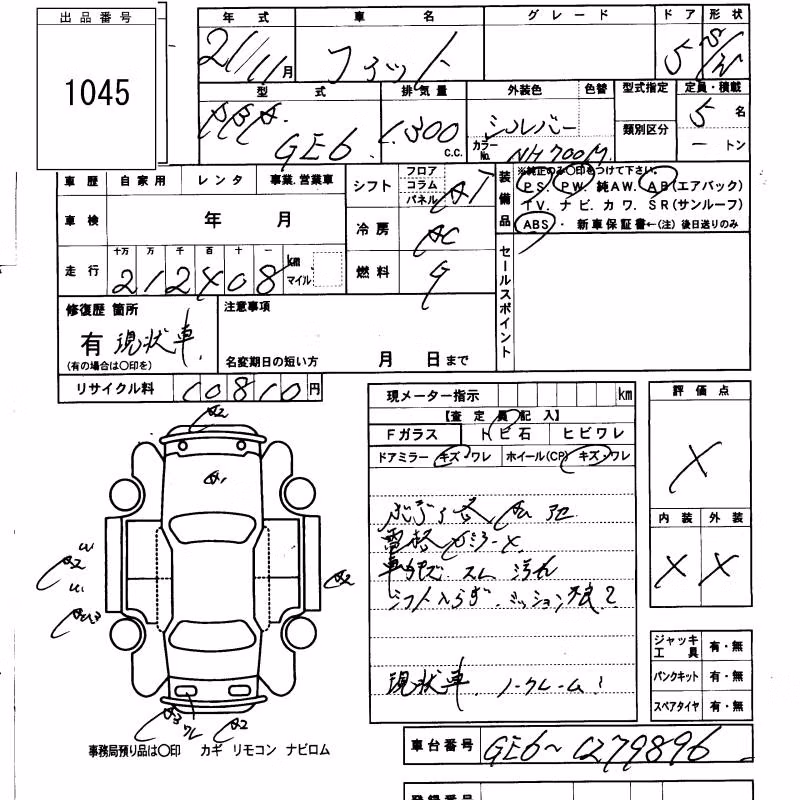 出品番号
1045
年式 車名 グレード ドア 形状
21/11月 フィット 5
型式 排気量 外装色 色替 型式指定 定員・積載
GE6 1300 C.C. シルバー 5 名
カラーNo. NH700M 類別区分 ー トン
車歴 自家用 レンタ 事業.営業車 シフト フロア コラム パネル AT
装備品
※純正のみ〇印をつけて下さい。
PS. PW. 純AW. AB(エアバック)
TV. ナビ. カワ. SR(サンルーフ)
ABS . 新車保証書←(注) 後日送りのみ
車検 年 月 冷房 AC
走行 十万 万 千 百 十 一
212408 km マイル 燃料 G
セールスポイント
修復歴 箇所 注意事項
有 現状車.
(有の場合は〇印を) 名変期日の短い方 月 日まで
リサイクル料 10810円
現メーター指示 km
【査定員記入】
Fガラス トビ石 ヒビワレ
ドアミラー キズ・ワレ ホイール(CP) キズ・ワレ
評価点
X
内装 外装
X X
A2
A1
A2
A2
ワレ
A2
シフト入らず.ミッション不良?
現状車. ノークレーム!
ジャッキ工具 有・無
パンクキット 有・無
スペアタイヤ 有・無
事務局預り品は〇印 カギ リモコン ナビロム
車台番号 GE6~1279896
登録番号